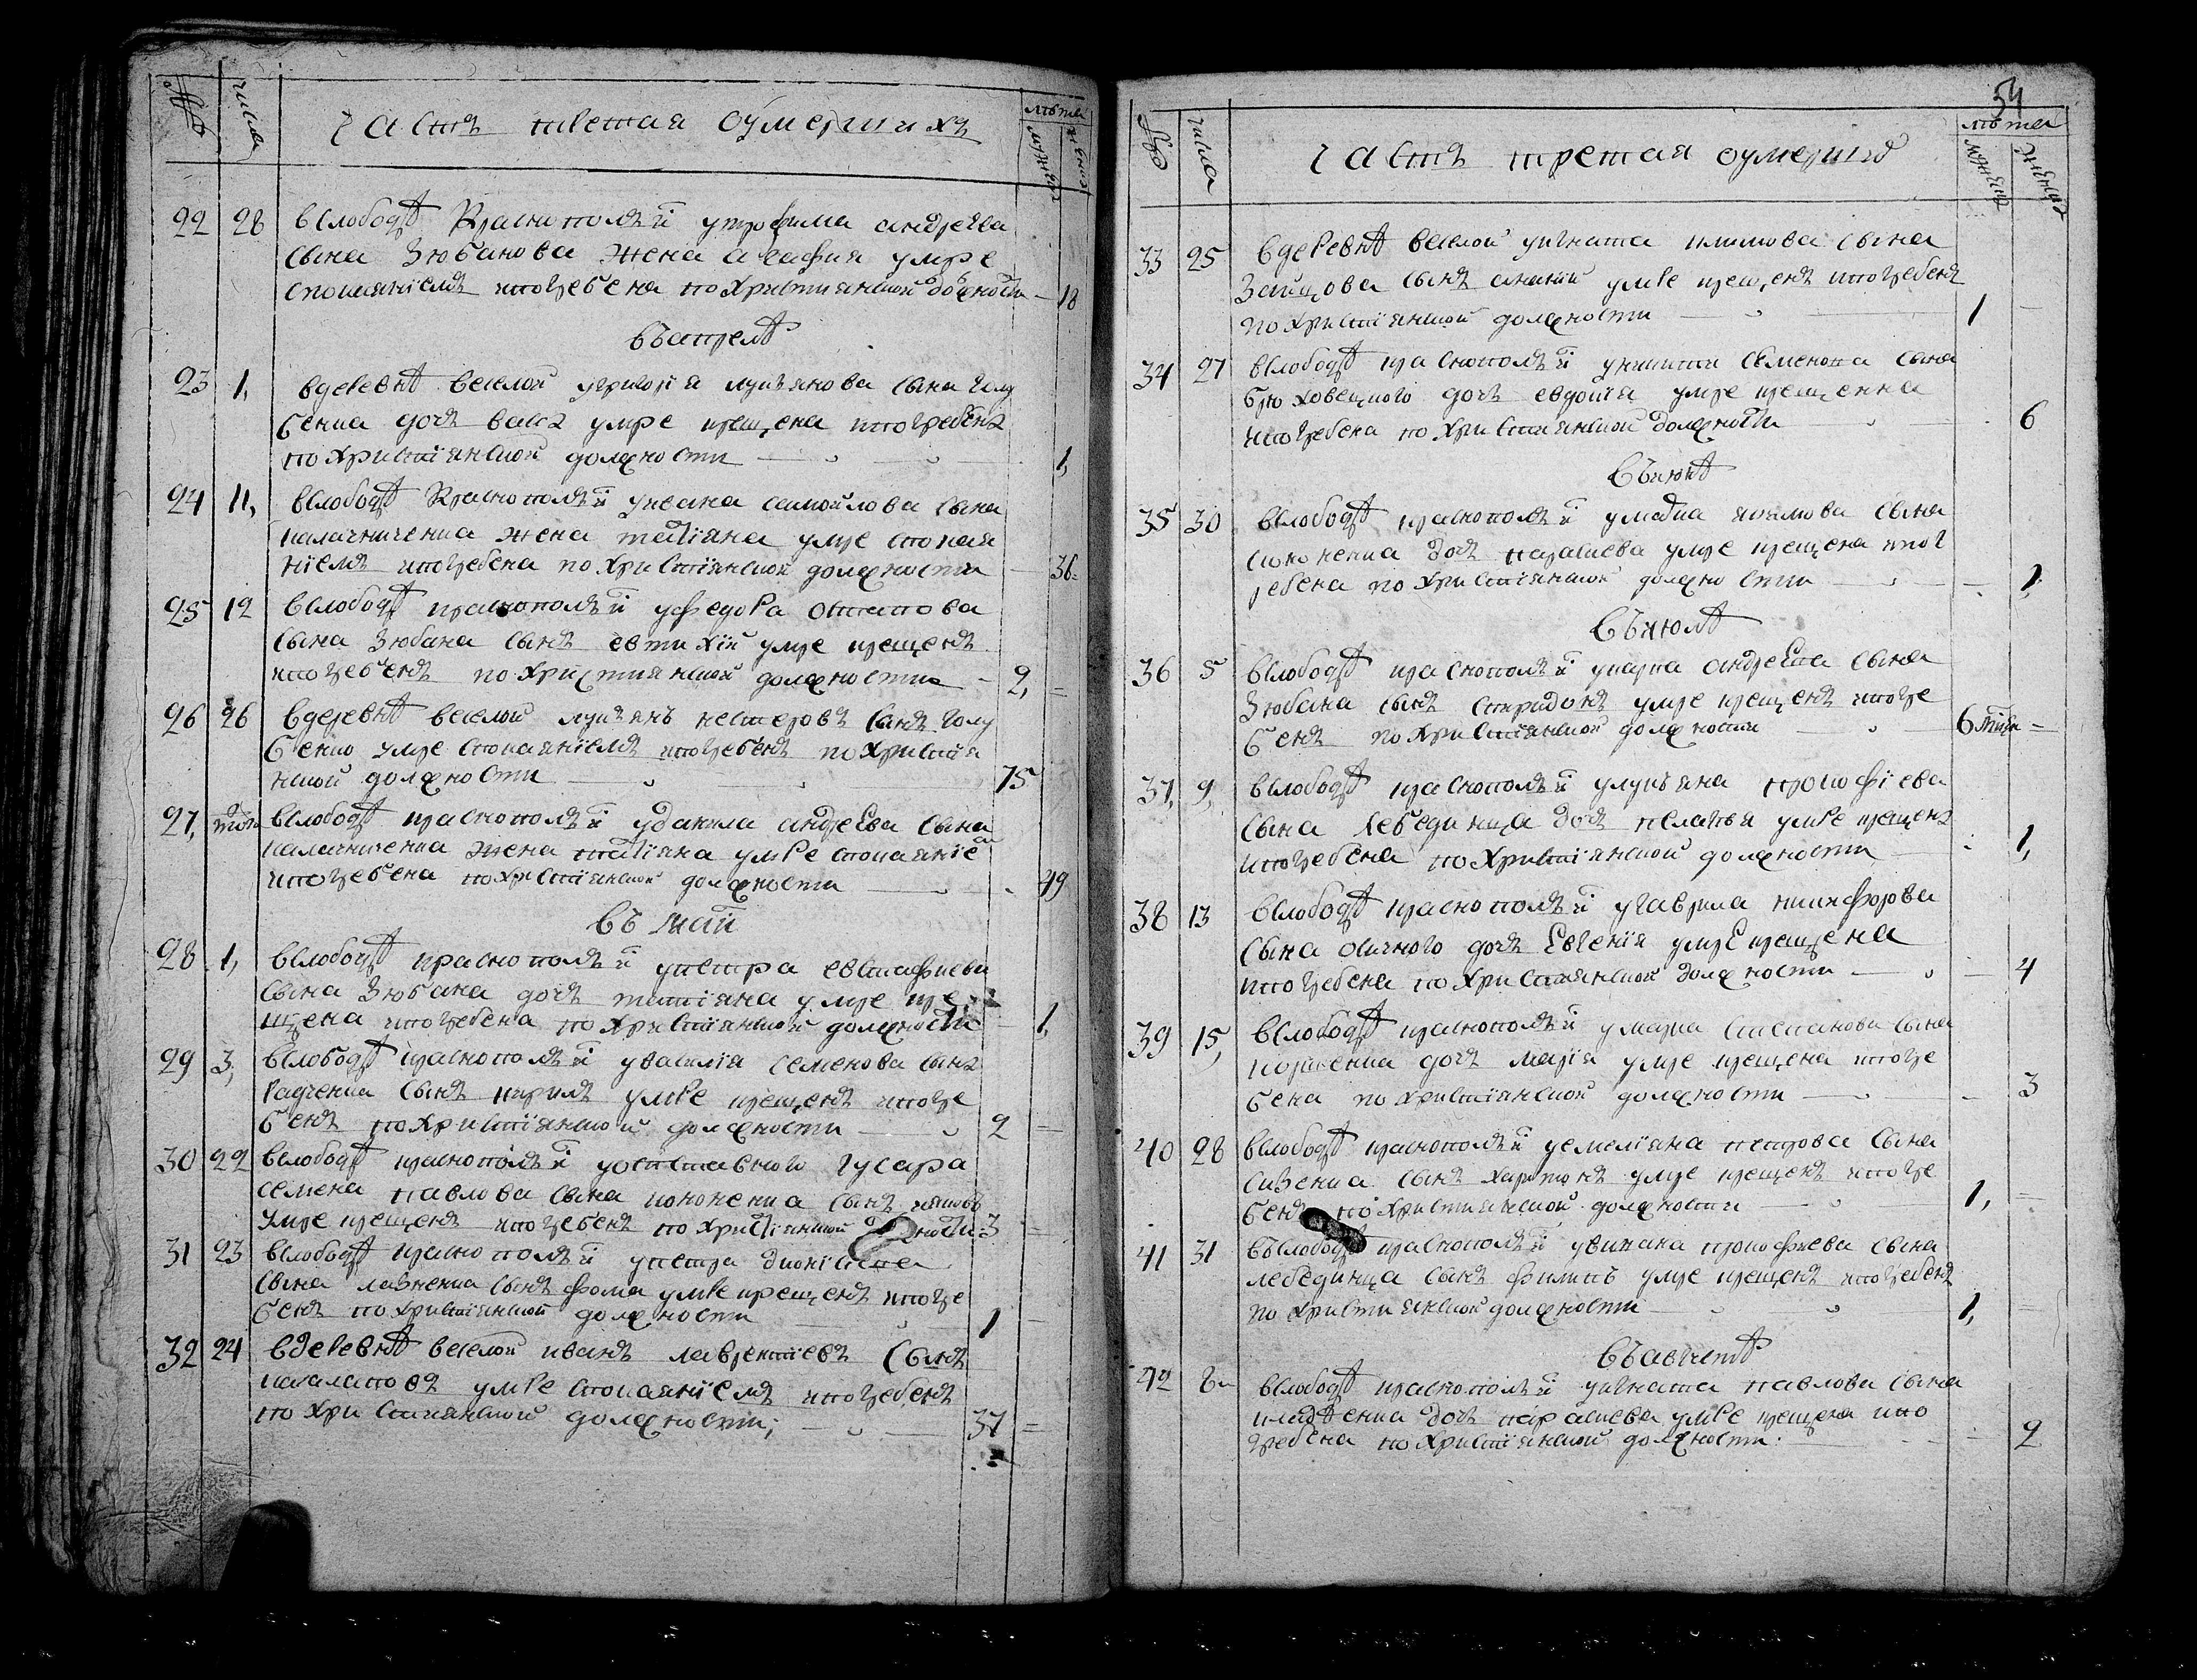 числа
часть третая оумерших
лѣта
22 28 вслободѣ Краснополѣй утрофима андреева
сына Зюбанова жена агафия умре
спокаяніемъ ипогребена по Християнской должности — 18
въ апрелѣ
23 1, вдеревнѣ веселой угригорія лукянова сына Голу
бенка дочь васса умре крещена ипогребена
по християнской должности 1,
24 11, вслободѣ Краснополѣй уивана самойлова сына
калачниченка жена татіяна умре спокая
ніемъ ипогребена по Християнской должности — 36
25 12 вслободѣ краснополѣй уфедора остапова
сына Зюбана сынъ евтихій умре крещенъ
ипогребенъ по християнской должности 2,
26 26 вдеревнѣ веселой лукянъ нестеровъ сынъ голу
бенко умре спокаяніемъ ипогребенъ по християн
нской должности 75
27, вслободѣ краснополѣй уданила андреева сына
калачниченка жена татіяна умре спокаяніе
ипогребена по християнской должности 49
въ май
28 1, вслободѣ краснополѣй упетра евстафиева
сына Зюбана дочь татіяна умре кре
щена ипогребена по Християнской должности 1,
29 3, вслободѣ краснополѣй увасилія семенова сына
Радченка сынъ кирилъ умре крещенъ ипогре
бенъ по Християнской должности 2
30 22 вслободѣ краснополѣй уотставного гусара
семена павлова сына кононенка сынъ яковъ
умре крещенъ ипогребенъ по християнской 3
31 23 вслободѣ краснополѣй упетра
сына сынъ фома умре крещенъ ипогре
бенъ по християнской должности 1
32 24 вдеревнѣ веселой иванъ лаврентіевъ сынъ
умре спокаяніемъ ипогребенъ
по Християнской должности; 37
54
числа
часть третая оумерших
лѣта
33 25 вдеревнѣ веселой уигната климова сына
Зайцова сынъ умре крещенъ ипогребенъ
по християнской должности 1
34 27 вслободѣ краснополѣй уникити семенова сына
брюховецкого дочь евдокія умре крещенна
ипогребена по Християнской должности 6
въ июнѣ
35 30 вслободѣ краснополѣй яковлова сына
кононенка дочь параскева умре крещена ипог
ребена по Християнской должности 1,
въ июлѣ
36 5 вслободѣ краснополѣй укарпа андреева сына
Зюбана сынъ спиридонъ умре крещенъ ипогре
бенъ по Християнской должности 6
37, 9, вслободѣ краснополѣй улукъяна прокофіева
сына лебединца дочь пелагея умре крещена
ипогребена по християнской должности 1,
38 13 вслободѣ краснополѣй угаврила никифорова
сына дочь Евгенія умре крещена
ипогребена по Християнской должности 4
39 15, вслободѣ краснополѣй умарка степанова сына
дочь марія умре крещена ипогре
бена по християнской должности 3
40 28 вслободѣ краснополѣй уемеліяна петрова сына
сизенка сынъ харитонъ умре крещенъ ипогре
бенъ по християнской должности 1,
41 31 въслободѣ краснополѣй прокофиева сына
лебединца сынъ филипъ умре крещенъ ипогребенъ
по християнской должности 1,
въ августѣ
42 вслободѣ краснополѣй уигната павлова сына
дочь параскева умре крещена ипо
гребена по Християнской должности 2